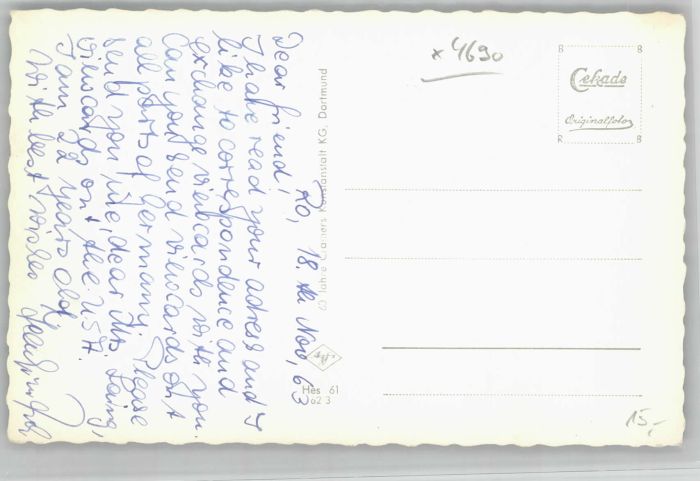 Ro, 18. th Nov, 63
Dear friend!
I have read your adress and I
like to correspondence and
exchange viewcards with you.
Can you send viewcards ont
all parts of Germany. Please
send you me, dear
viewcards ont the USA.
I am 22 years old
With best wishes
60 Jahre Cramers Kunstanstalt KG, Dortmund
x 4690
Cekade
Originalfoto
Agfa
Hes 61
62 3
15,-